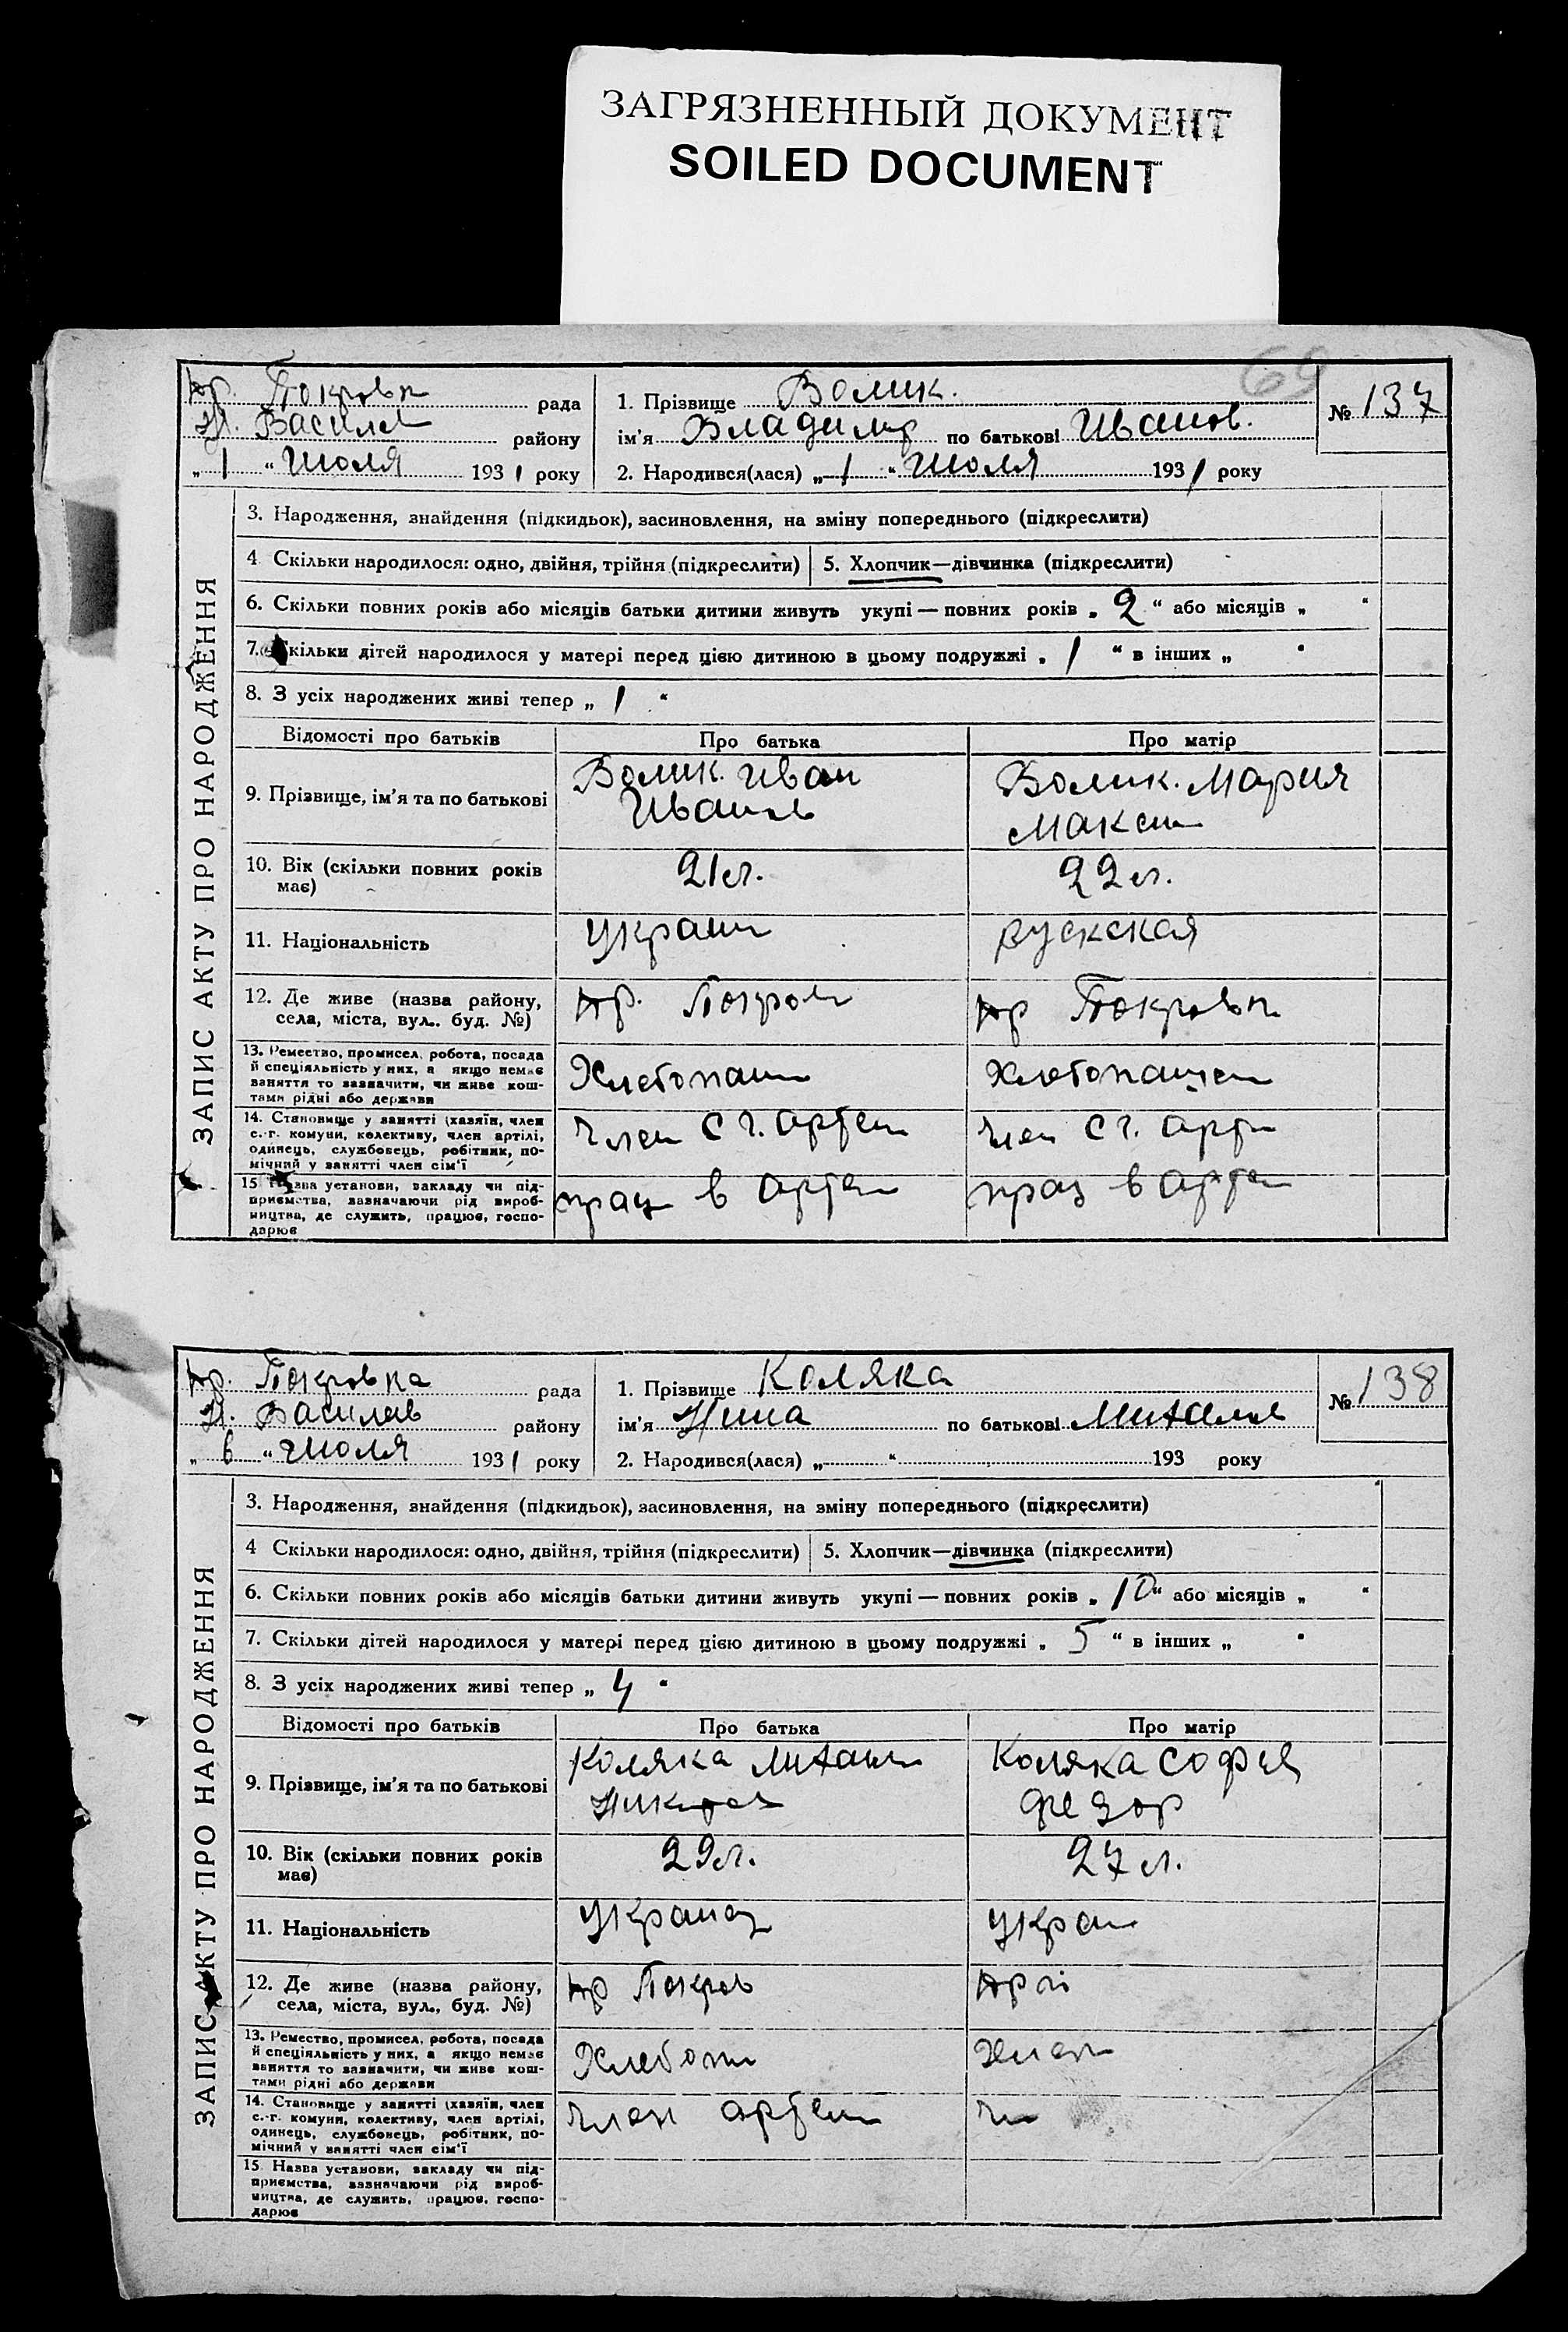 ЗАГРЯЗНЕННЫЙ ДОКУМЕНТ
SOILED DOCUMENT
69
Покровк рада
Н. Василев району
„ 1 “ Июля 1931 року
1. Прізвище Волик.
ім'я Владимир по батькові Иванов.
2. Народився(лася) „ 1 “ Июля 1931 року
№ 137
ЗАПИС АКТУ ПРО НАРОДЖЕННЯ
3. Народження, знайдення (підкидьок), засиновлення, на зміну попереднього (підкреслити)
4 Скільки народилося: одно, двійня, трійня (підкреслити) 5. Хлопчик—дівчинка (підкреслити)
6. Скільки повних років або місяців батьки дитини живуть укупі — повних років „ 2 “ або місяців „ “
7. Скільки дітей народилося у матері перед цією дитиною в цьому подружжі „ 1 “ в інших „ “
8. З усіх народжених живі тепер „ 1 “
Відомості про батьків Про батька Про матір
9. Прізвище, ім'я та по батькові Волик. Иван Волик. Мария
Иванов Максим
10. Вік (скільки повних років має) 21 л. 22 л.
11. Національність украин русская
12. Де живе (назва району, села, міста, вул.. буд. №) Покров Покровк
13. Ремество, промисел, робота, посада й спеціяльність у них, а якщо немає заняття то зазначити, чи живе коштами рідні або держави Хлебопаш Хлебопашец
14. Становище у занятті (хазяїн, член с.-г. комуни, колективу, член артілі, одинець, службовець, робітник, помічний у занятті член сім'ї Член С Г. артели Член С Г. арт
15 Назва установи, закладу чи підприємства, зазначаючи рід виробництва, де служить, працює, господарює прац в артел прац в артел
Покровка рада
Н. Василев району
„ 6 “ Июля 1931 року
1. Прізвище Коляка
ім'я Нина по батькові Михайл
2. Народився(лася) „ “ 193 року
№ 138
ЗАПИС АКТУ ПРО НАРОДЖЕННЯ
3. Народження, знайдення (підкидьок), засиновлення, на зміну попереднього (підкреслити)
4 Скільки народилося: одно, двійня, трійня (підкреслити) 5. Хлопчик—дівчинка (підкреслити)
6. Скільки повних років або місяців батьки дитини живуть укупі — повних років „ 10 “ або місяців „ “
7. Скільки дітей народилося у матері перед цією дитиною в цьому подружжі „ 5 “ в інших „ “
8. З усіх народжених живі тепер „ 4 “
Відомості про батьків Про батька Про матір
9. Прізвище, ім'я та по батькові Коляка Михаил Коляка Софья
Федор
10. Вік (скільки повних років має) 29 л. 27 л.
11. Національність Украинц украи
12. Де живе (назва району, села, міста, вул., буд. №) Покров
13. Ремество, промисел, робота, посада й спеціяльність у них, а якщо немає заняття то зазначити, чи живе коштами рідні або держави Хлебопа
14. Становище у занятті (хазяїн, член с.-г. комуни, колективу, член артілі, одинець, службовець, робітник, помічний у занятті член сім'ї Член артели
15. Назва установи, закладу чи підприємства, зазначаючи рід виробництва, де служить, працює, господарює